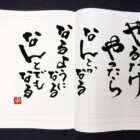 やるだけ
やったら
なんとか
なる
なるように
なる
なんとでも
なる